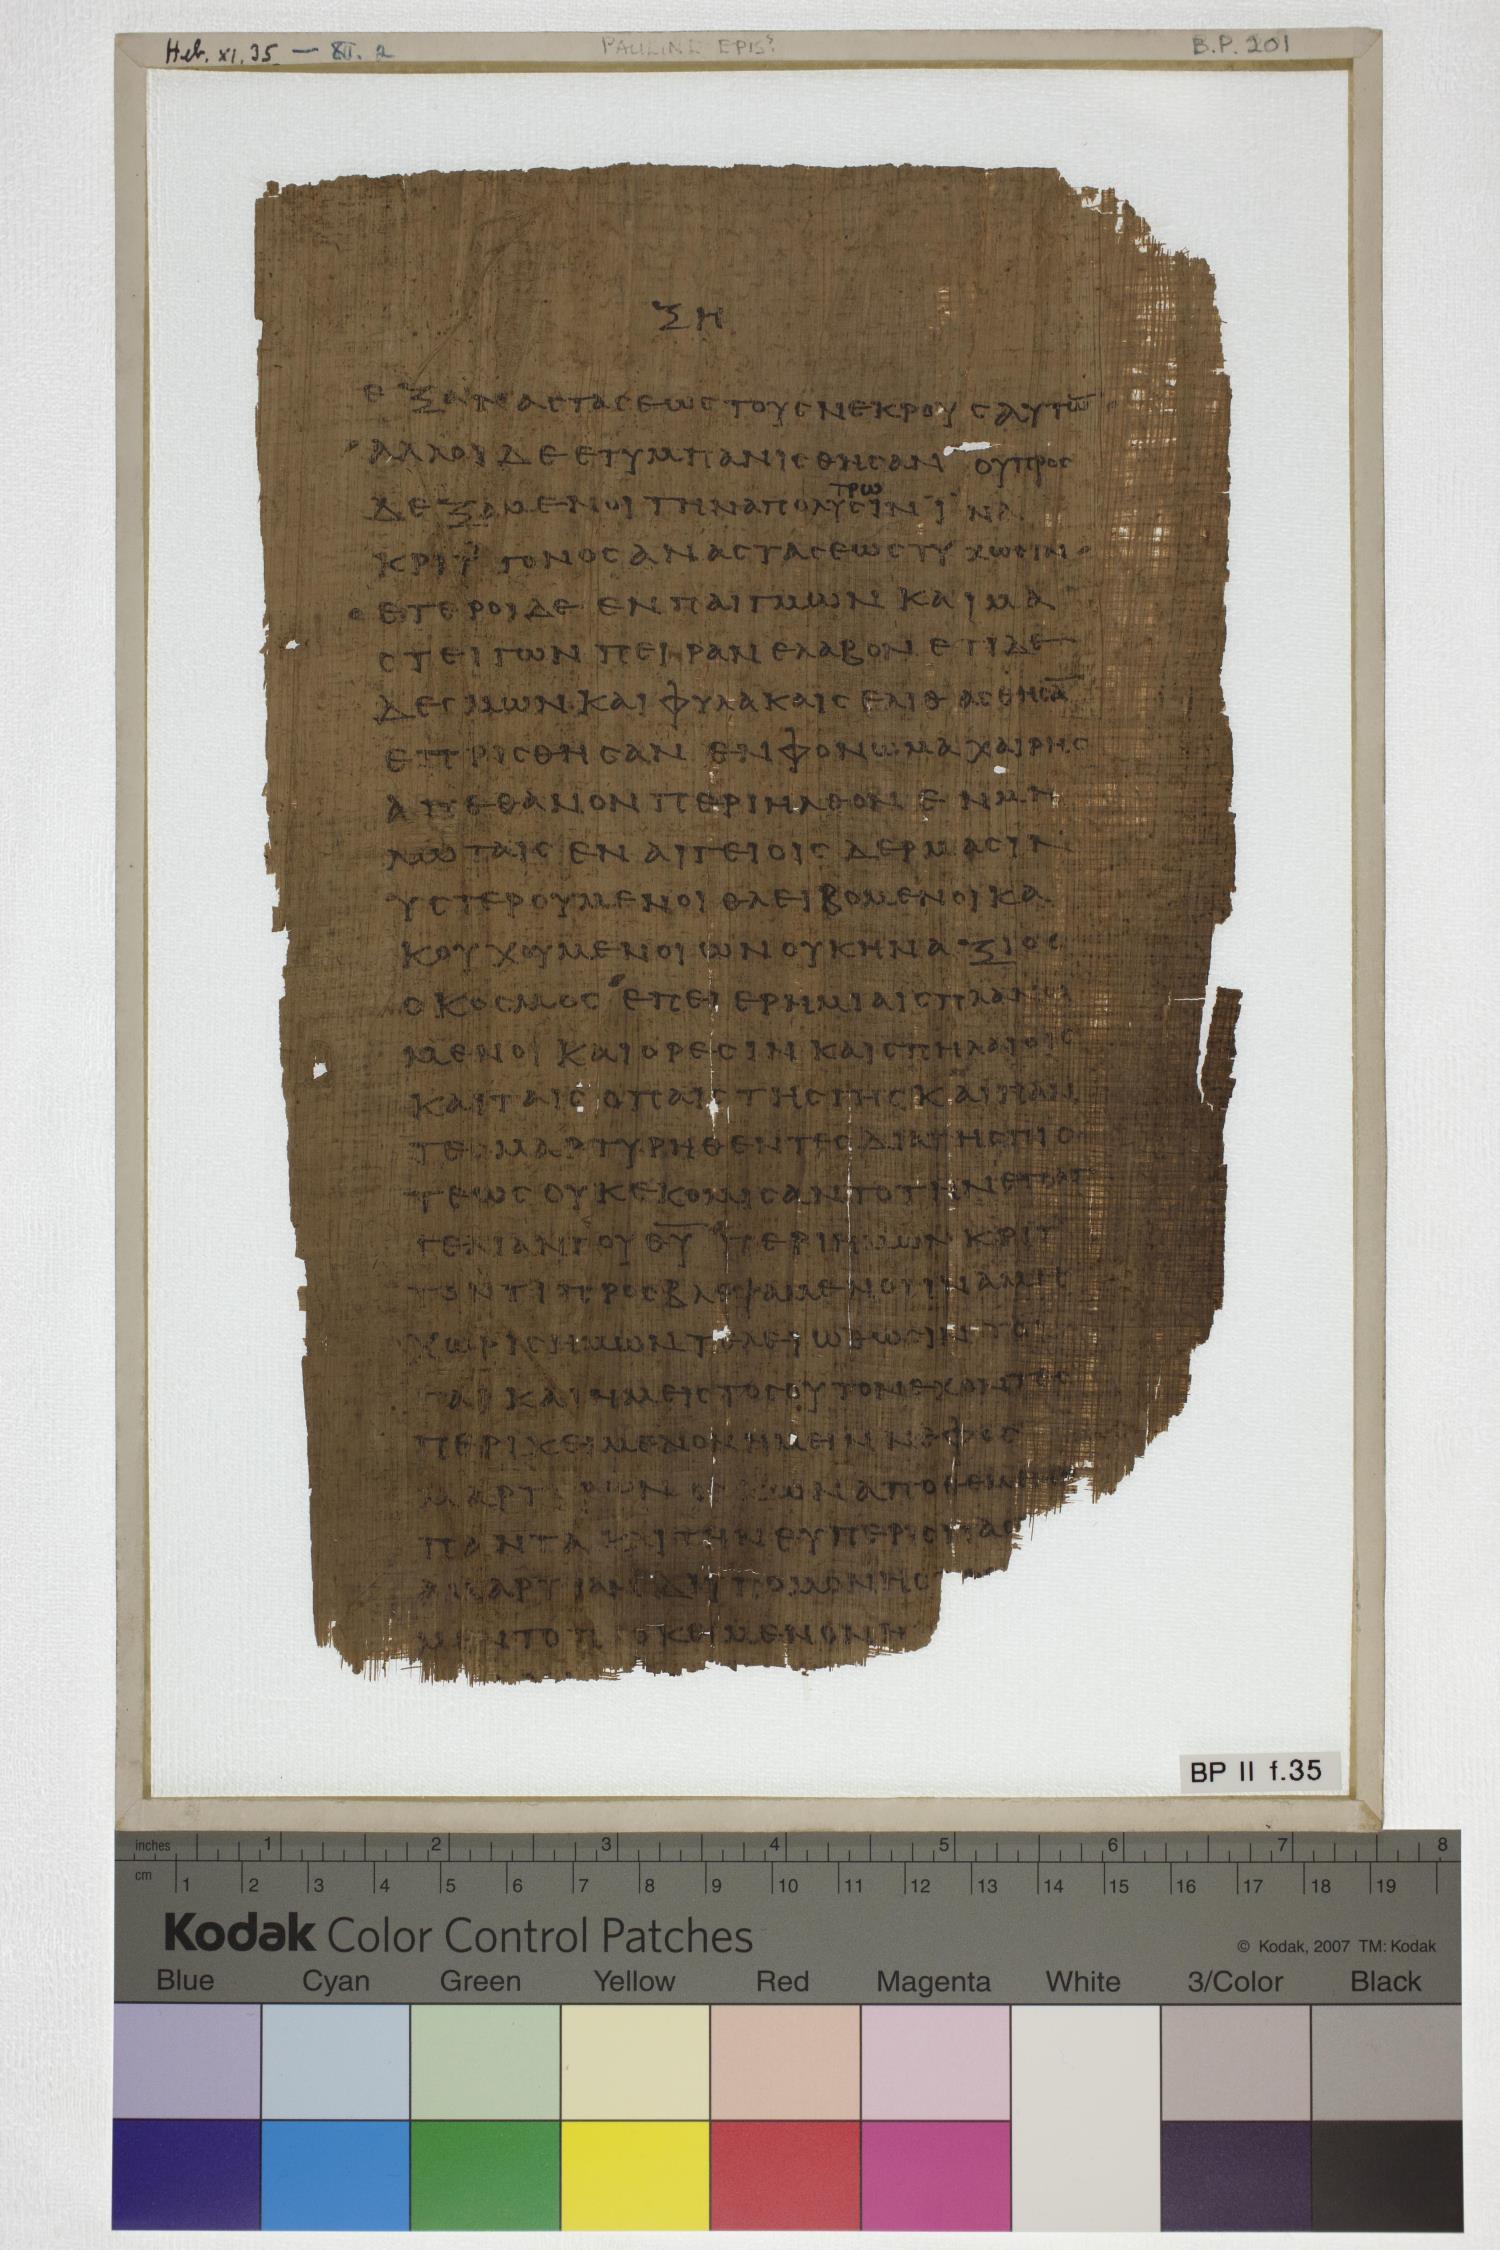 Heb. XI. 35 — XII. 2
PAULINE EPIS?
B.P. 201
ΞΗ
ΕΞΑΝΑϹΤΑϹΕΩϹΤΟΥϹΝΕΚΡΟΥϹΑΥΤΩ̅
ΑΛΛΟΙΔΕΕΤΥΜΠΑΝΙϹΘΗϹΑΝ ΟΥΠΡΟϹ
ΤΡΩ
ΔΕΞΑΜΕΝΟΙΤΗΝΑΠΟΛΥϹΙΝ ΪΝΑ
ΚΡΙΤΤΟΝΟϹΑΝΑϹΤΑϹΕΩϹΤΥΧΩϹΙΝ
ΕΤΕΡΟΙΔΕ ΕΝΠΑΙΓΜΩΝ ΚΑΙΜΑ
ϹΤΕΙΓΩΝ ΠΕΙΡΑΝΕΛΑΒΟΝ ΕΤΙΔΕ
ΔΕϹΜΩΝΚΑΙΦΥΛΑΚΑΙϹΕΛΙΘΑϹΘΗϹΑ̅
ΕΠΡΙϹΘΗϹΑΝ ΕΝΦΟΝΩΜΑΧΑΙΡΗϹ
ΑΠΕΘΑΝΟΝΠΕΡΙΗΛΘΟΝ ΕΝΜΗ
ΛΩΤΑΙϹ ΕΝ ΑΙΓΕΙΟΙϹ ΔΕΡΜΑϹΙΝ
ΥϹΤΕΡΟΥΜΕΝΟΙ ΘΛΕΙΒΟΜΕΝΟΙΚΑ
ΚΟΥΧΟΥΜΕΝΟΙΩΝΟΥΚΗΝΑΞΙΟϹ
ΟΚΟϹΜΟϹ ΕΠΕΙ ΕΡΗΜΙΑΙϹΠΛΑΝΩ
ΜΕΝΟΙ ΚΑΙΟΡΕϹΙΝ ΚΑΙϹΠΗΛΑΙΟΙϹ
ΚΑΙΤΑΙϹ ΟΠΑΙϹ ΤΗϹΓΗϹΚΑΙΠΑΝ
ΤΕϹΜΑΡΤΥΡΗΘΕΝΤΕϹΔΙΑΤΗϹΠΙϹ
ΤΕΩϹ ΟΥΚΕΚΟΜΙϹΑΝΤΟΤΗΝΕΠΑΓ
ΓΕΛΙΑΝΤΟΥΘ̅Υ̅ ΠΕΡΙΗΜΩΝΚΡΙΤ
ΤΟΝΤΙΠΡΟϹΒΛΕΨΑΜΕΝΟΥΙΝΑΜΗ
ΧΩΡΙϹΗΜΩΝΤΕΛΕΙΩΘΩϹΙΝΤΟ
ΓΑΡΚΑΙΗΜΕΙϹΤΟϹΟΥΤΟΝΕΧΟΝΤΕϹ
ΠΕΡΙΚΕΙΜΕΝΟΝΗΜΕΙΝΝΕΦΟϹ
ΑΠΟΘΕΜΕΝΟΙ
ΠΑΝΤΑ ΚΑΙΤΗΝΕΥΠΕΡΙϹΠΑϹ
ΑΜΑΡΤΙΑΝ ΔΙΥΠΟΜΟΝΗϹ
ΜΕΝΤΟΠΡΟΚΕΙΜΕΝΟΝΗ
BP II f.35
inches 1 2 3 4 5 6 7 8
cm 1 2 3 4 5 6 7 8 9 10 11 12 13 14 15 16 17 18 19
Kodak Color Control Patches
© Kodak, 2007 TM: Kodak
Blue Cyan Green Yellow Red Magenta White 3/Color Black